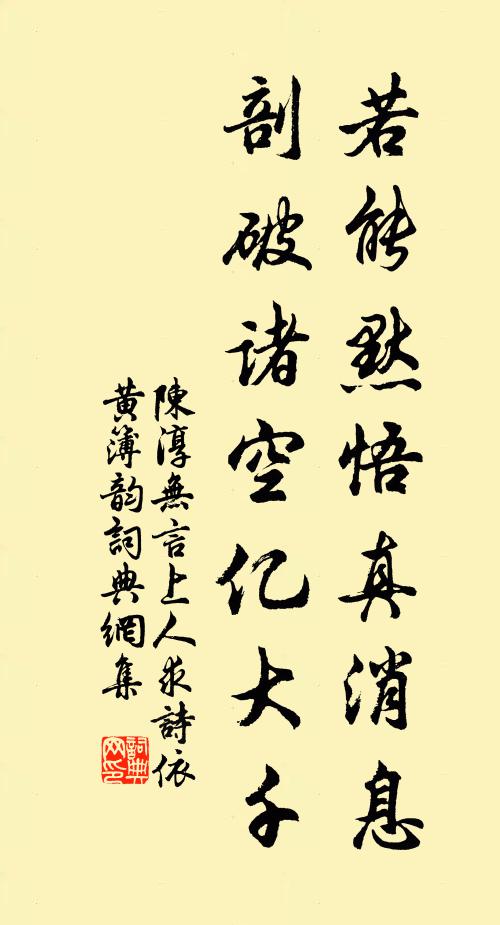 若能默悟真消息
剖破诸空亿大千
陳淳無言上人求詩依
黄簿韵詞典網集
詞典网印